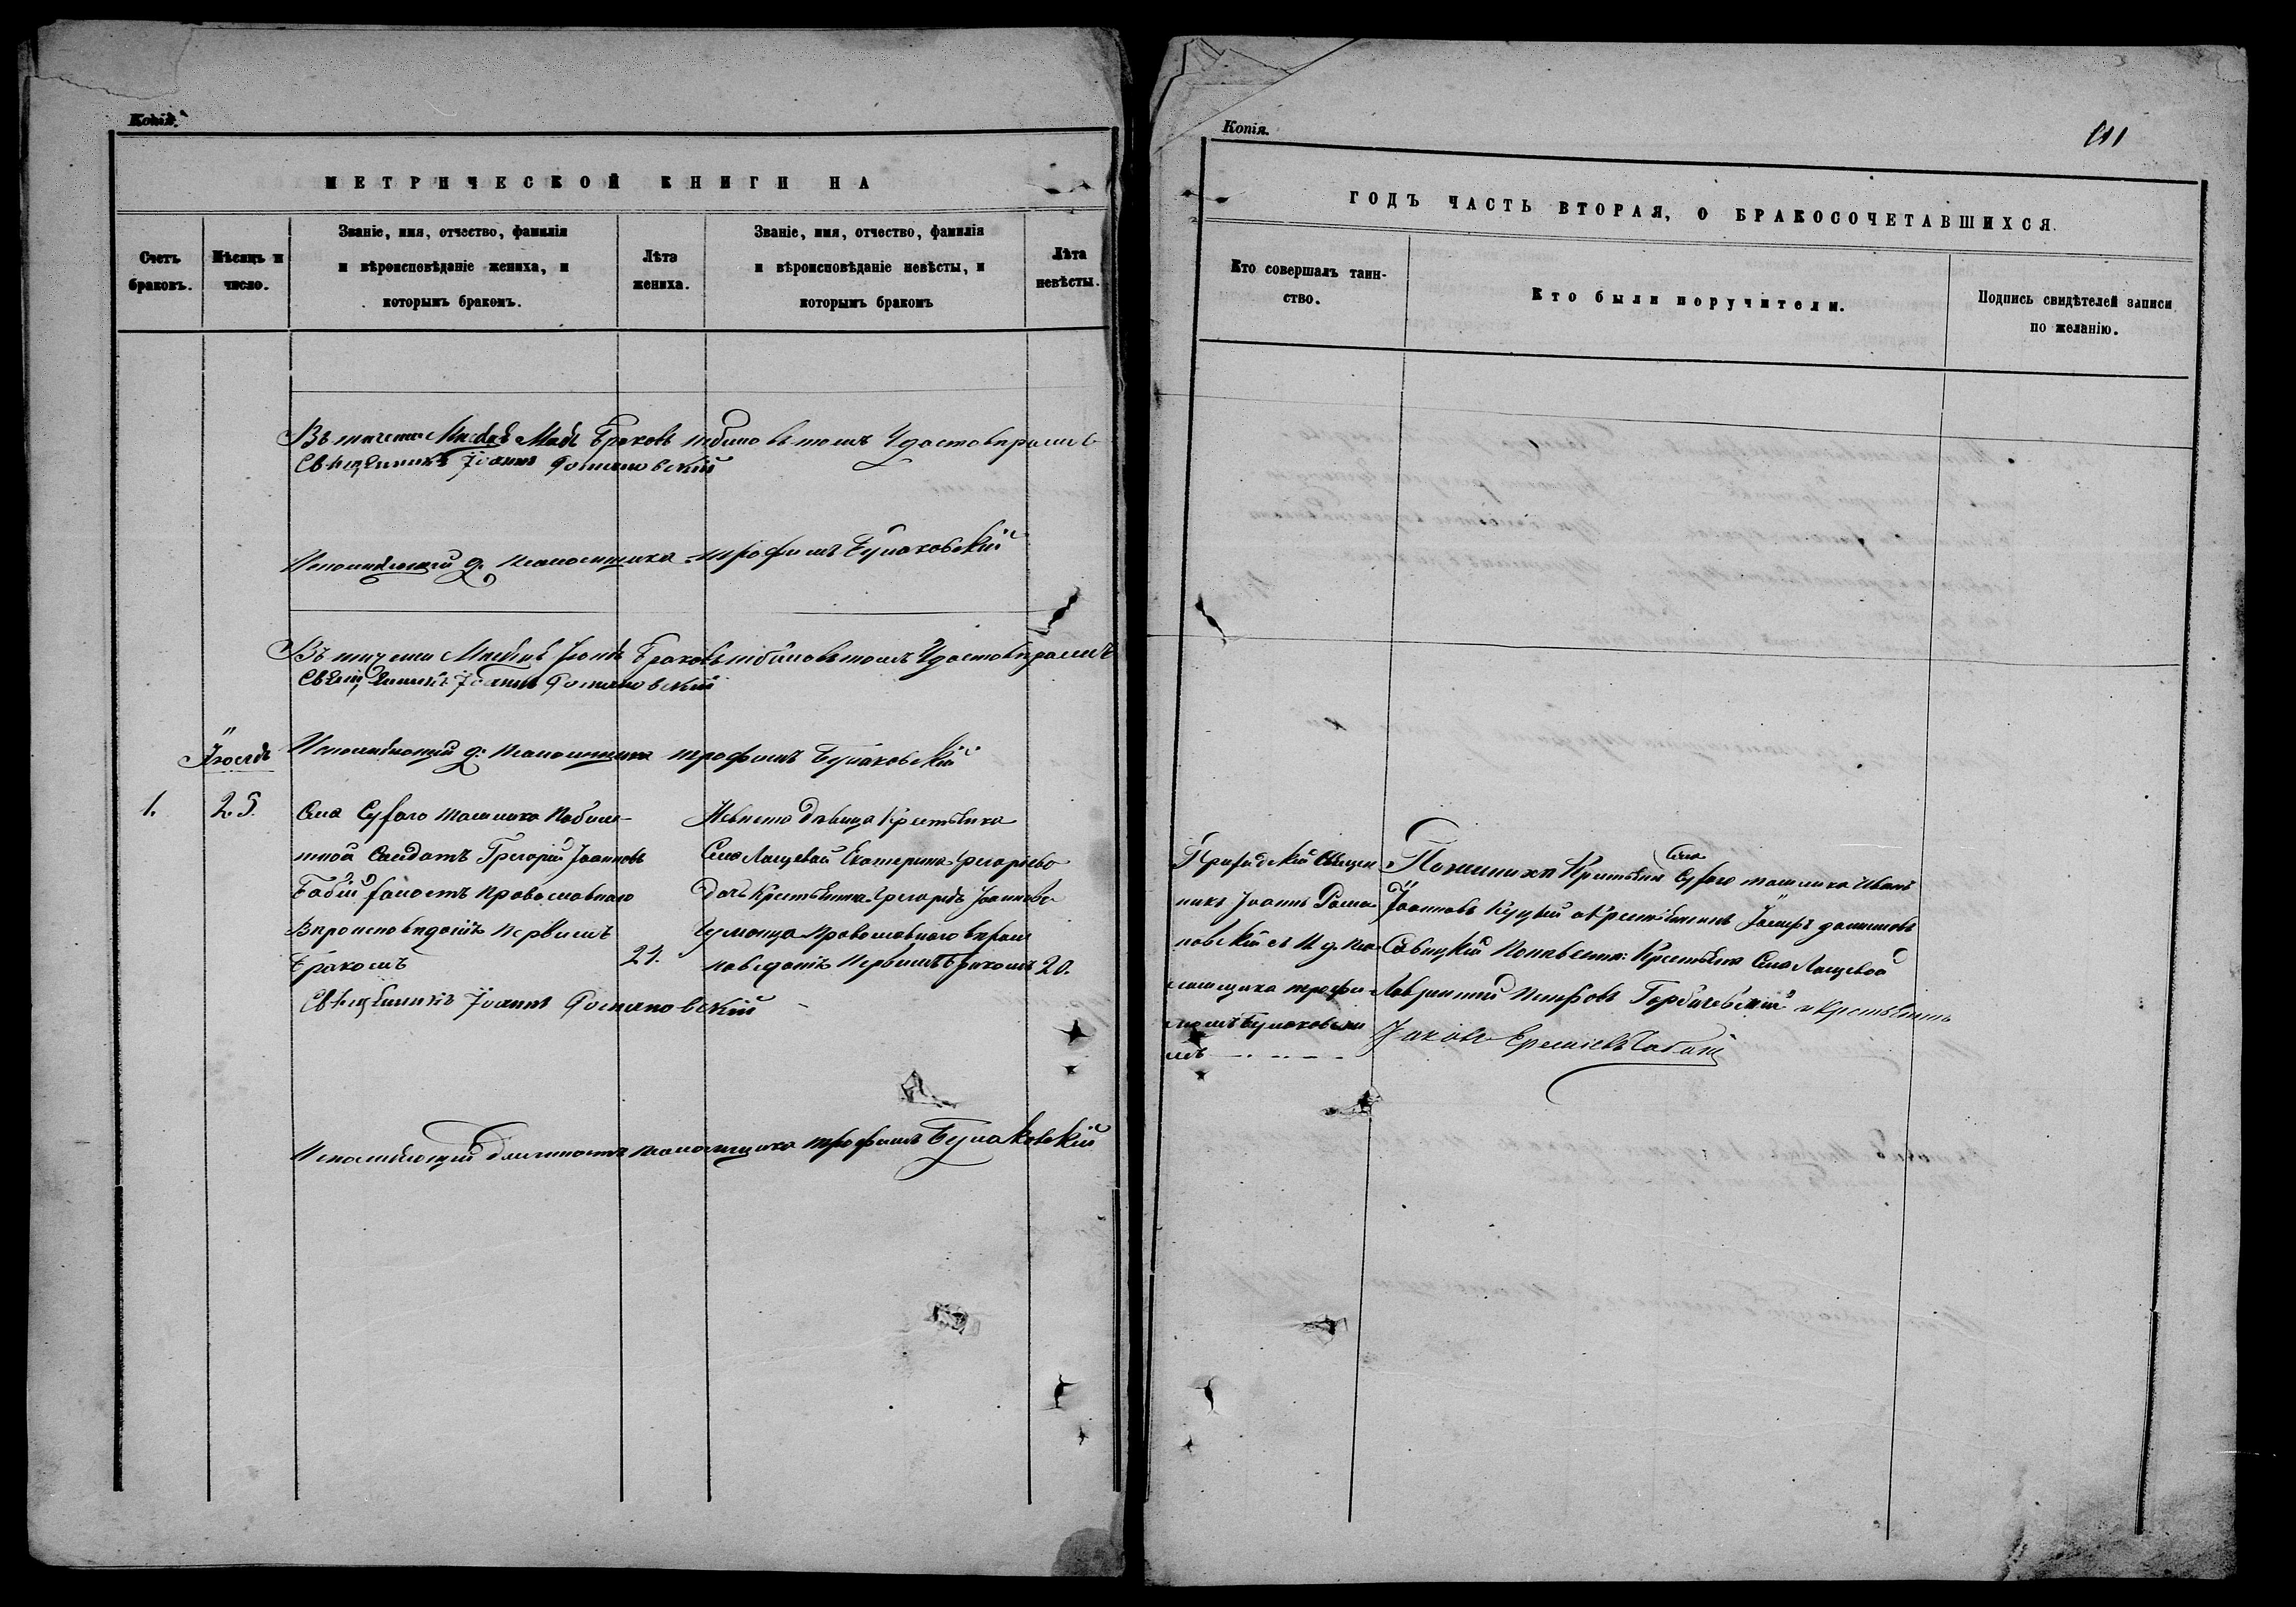 Копія.
МЕТРИЧЕСКОЙ КНИГИ НА
Счетъ
браковъ.
Мѣсяцъ и
число.
Званіе, имя, отчество, фамилія
и вѣроисповѣданіе жениха, и
которымъ бракомъ.
Лѣта
жениха.
Званіе, имя, отчество, фамилія
и вѣроисповѣданіе невѣсты, и
которымъ бракомъ
Лѣта
невѣсты.
Въ Маѣ браковъ небыло въ томъ Удостовѣряемъ
Священникъ Іоаннъ Романовскій
Исполняющій д. Псаломщика Трофимъ Булаковскій
Въ Іюнѣ браковъ небыло въ томъ Удостовѣряемъ
Священникъ Іоаннъ Романовскій
Исполняющій д. Псаломщика Трофимъ Булаковскій
Іюль
1.
25.
Села Сухаго Ташлика
Солдатъ Григорій Іоанновъ
Бабій холостъ Православнаго
Вѣроисповѣданія Первымъ
Бракомъ
21.
Невѣста Дѣвица Крестьянка
Села Лащевой Екатерина Григорьева
Дочь Крестьянина Григорія Іоаннова
Православнаго вѣроис
повѣданія Первымъ Бракомъ
20.
Священникъ Іоаннъ Романовскій
Исполняющій должность Псаломщика Трофимъ Булаковскій
Копія.
111
ГОДЪ ЧАСТЬ ВТОРАЯ, О БРАКОСОЧЕТАВШИХСЯ.
Кто совершалъ таин-
ство.
Кто были поручители.
Подпись свидѣтелей записи
по желанію.
Приходскій Священ
никъ Іоаннъ Рома
новскій съ И. д. Пса
ломщика Трофи
момъ Булаковски
мъ
По женихѣ Крестьяне Села Сухаго Ташлика Иванъ
Іоанновъ Куцый и Крестьянинъ Іосифъ
Савицкій По невѣстѣ: Крестьяне Села Лащевой
Лаврентій Петровъ Горбачевскій и Крестьянинъ
Іаковъ Ереміевъ